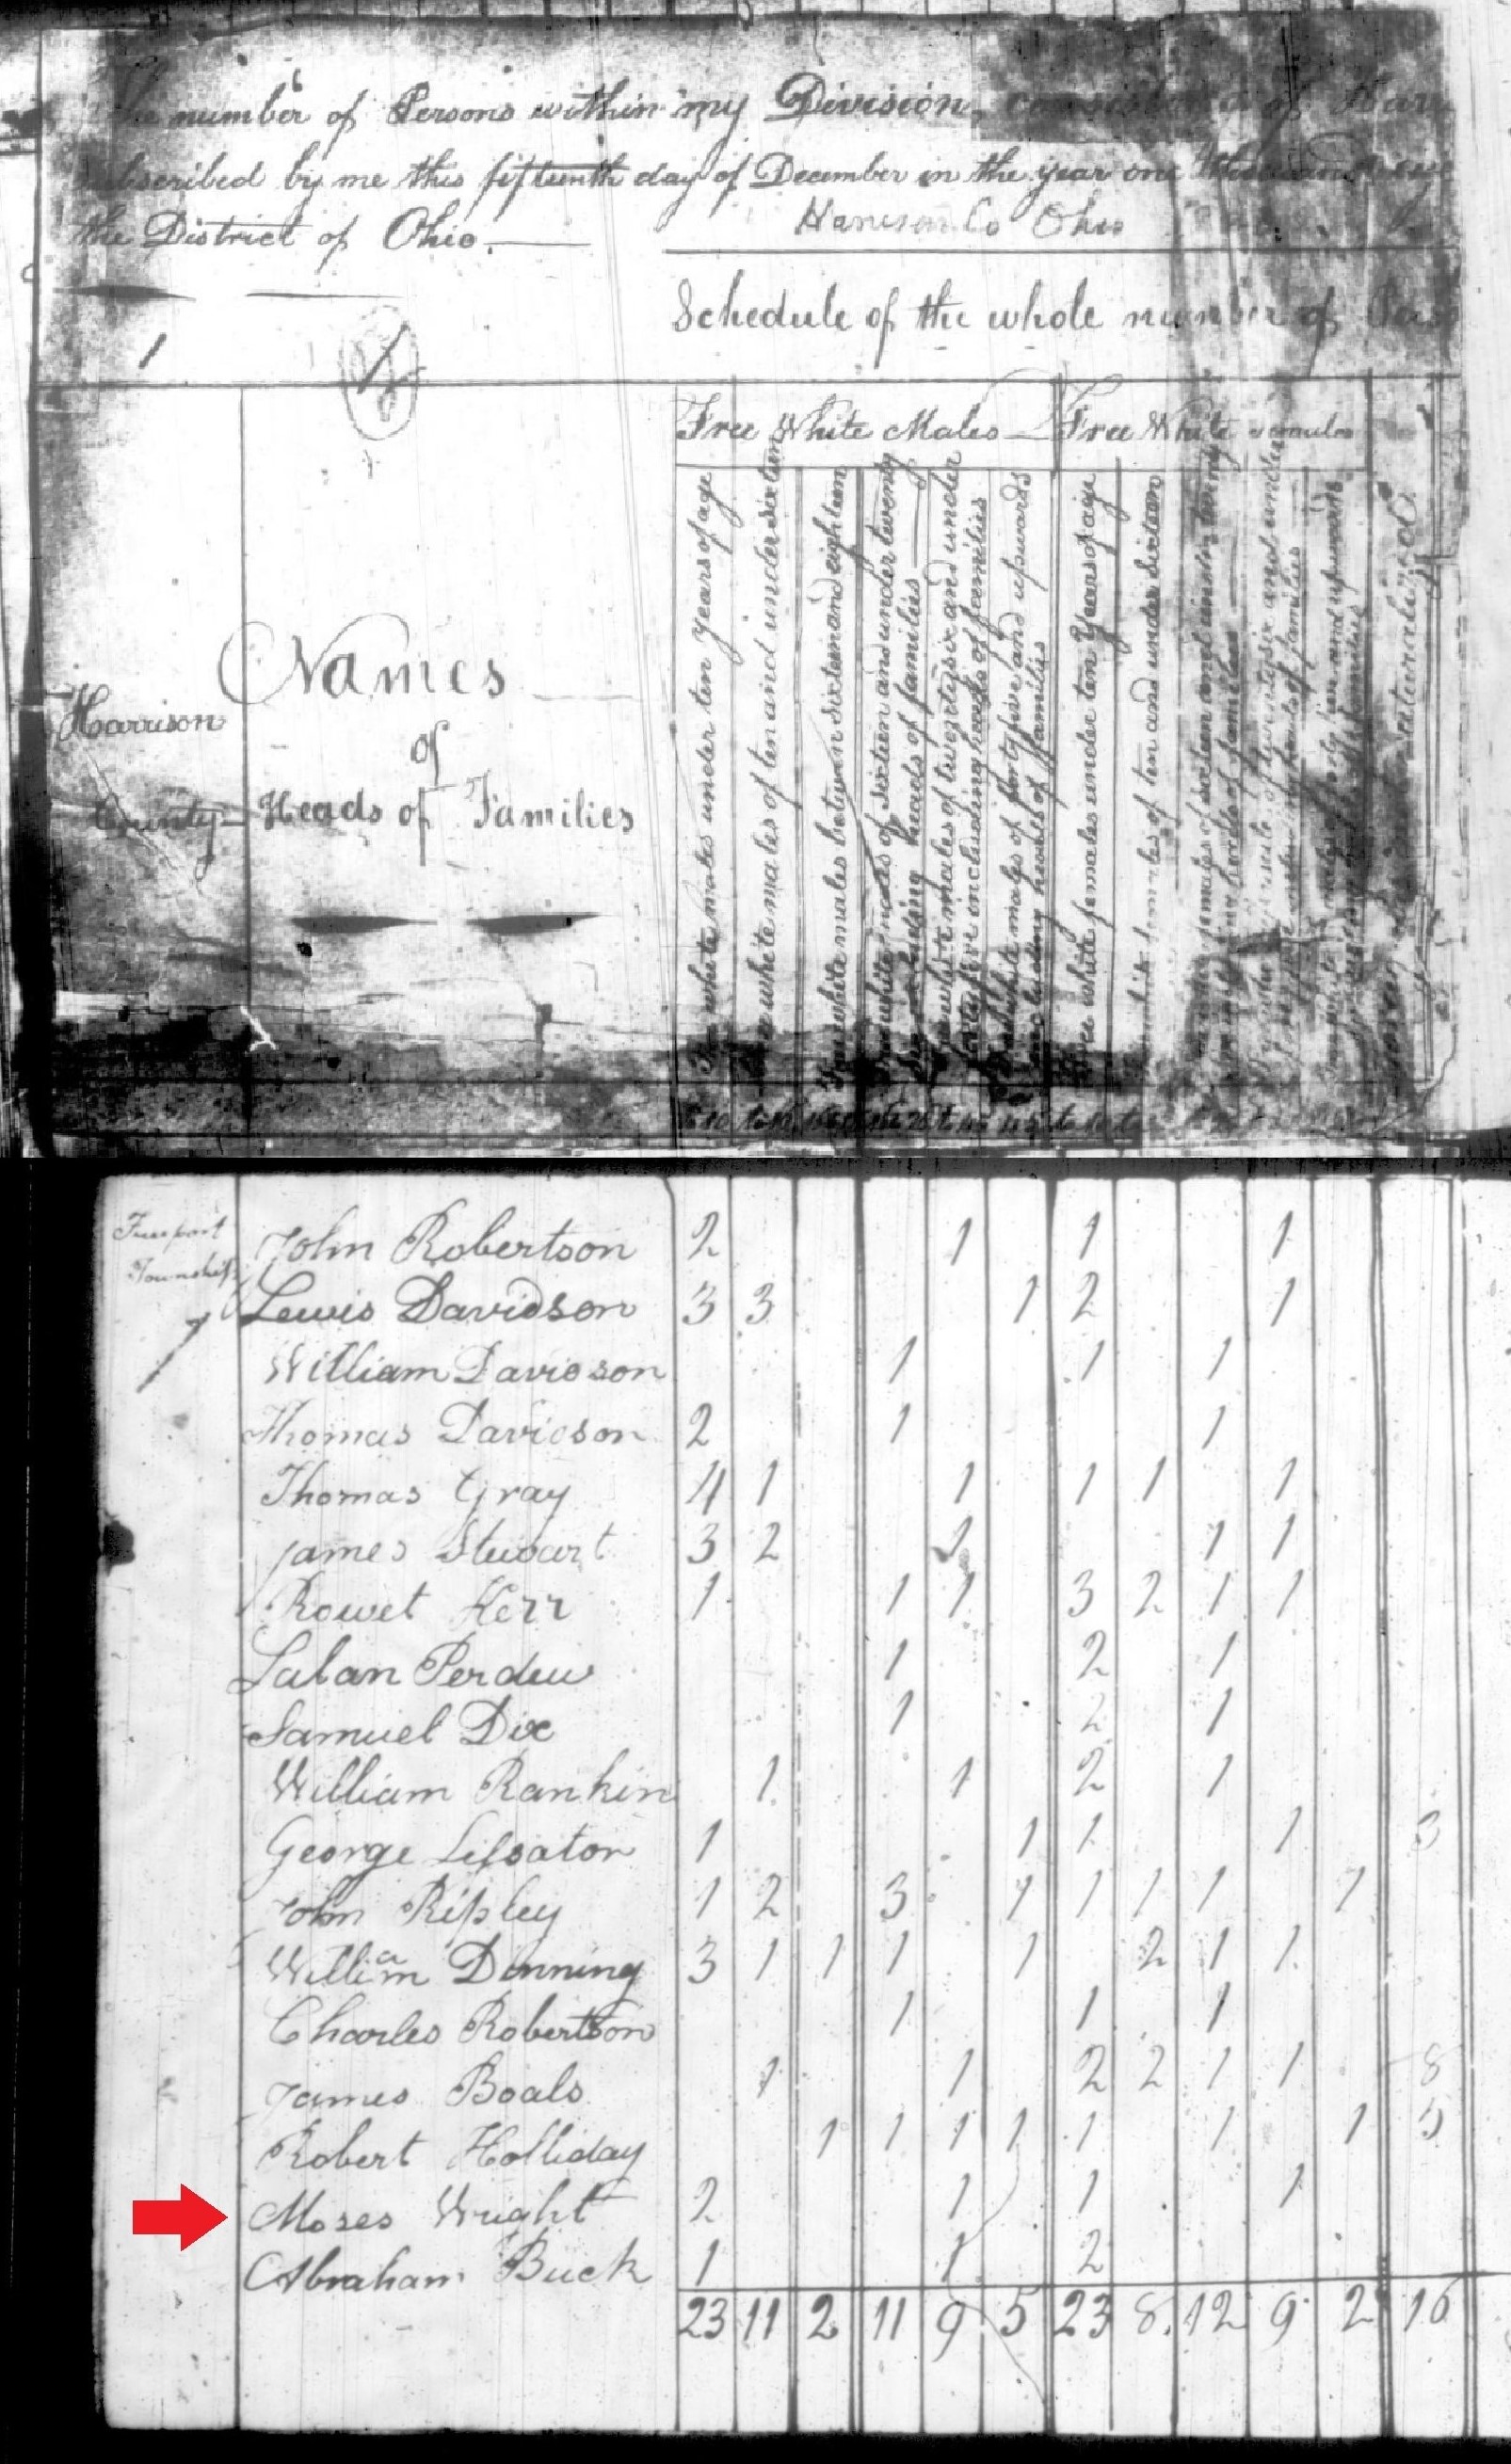 The number of Persons within my Division, consisting of Harr
subscribed by me this fifteenth day of December in the year one thousand
the District of Ohio.
Harrison Co Ohio
Schedule of the whole number of Pers
1
Free White Males Free White Females
Harrison County
Names
of
Heads of Families
Free white males under ten years of age
Free white males of ten and under sixteen
Free white males between sixteen and eighteen
Free white males of sixteen and under twenty
six including heads of families
Free white males of twenty six and under
forty five including heads of families
Free white males of forty five and upwards
including heads of families
Free white females under ten years of age
white females of ten and under sixteen
females of sixteen and under twenty
heads of families
females of twenty six and under
including heads of families
and upwards
families
naturalized
Freeport
Township
John Robertson 2 1 1 1
Lewis Davidson 3 3 1 2 1
William Davidson 1 1 1
Thomas Davidson 2 1 1
Thomas Gray 4 1 1 1 1 1
James Stewart 3 2 1 1 1
Rowet Kerr 1 1 1 3 2 1 1
Laban Perdew 1 2 1
Samuel Dix 1 2 1
William Rankin 1 1 2 1
George Lifsator 1 1 1 1 3
John Ripley 1 2 3 1 1 1 1 1
William Dinning 3 1 1 1 1 2 1 1
Charles Robertson 1 1 1
James Boals 1 1 2 2 1 1 8
Robert Holliday 1 1 1 1 1 1 1 5
Moses Wright 2 1 1 1
Abraham Buck 1 1 2
23 11 2 11 9 5 23 8 12 9 2 16